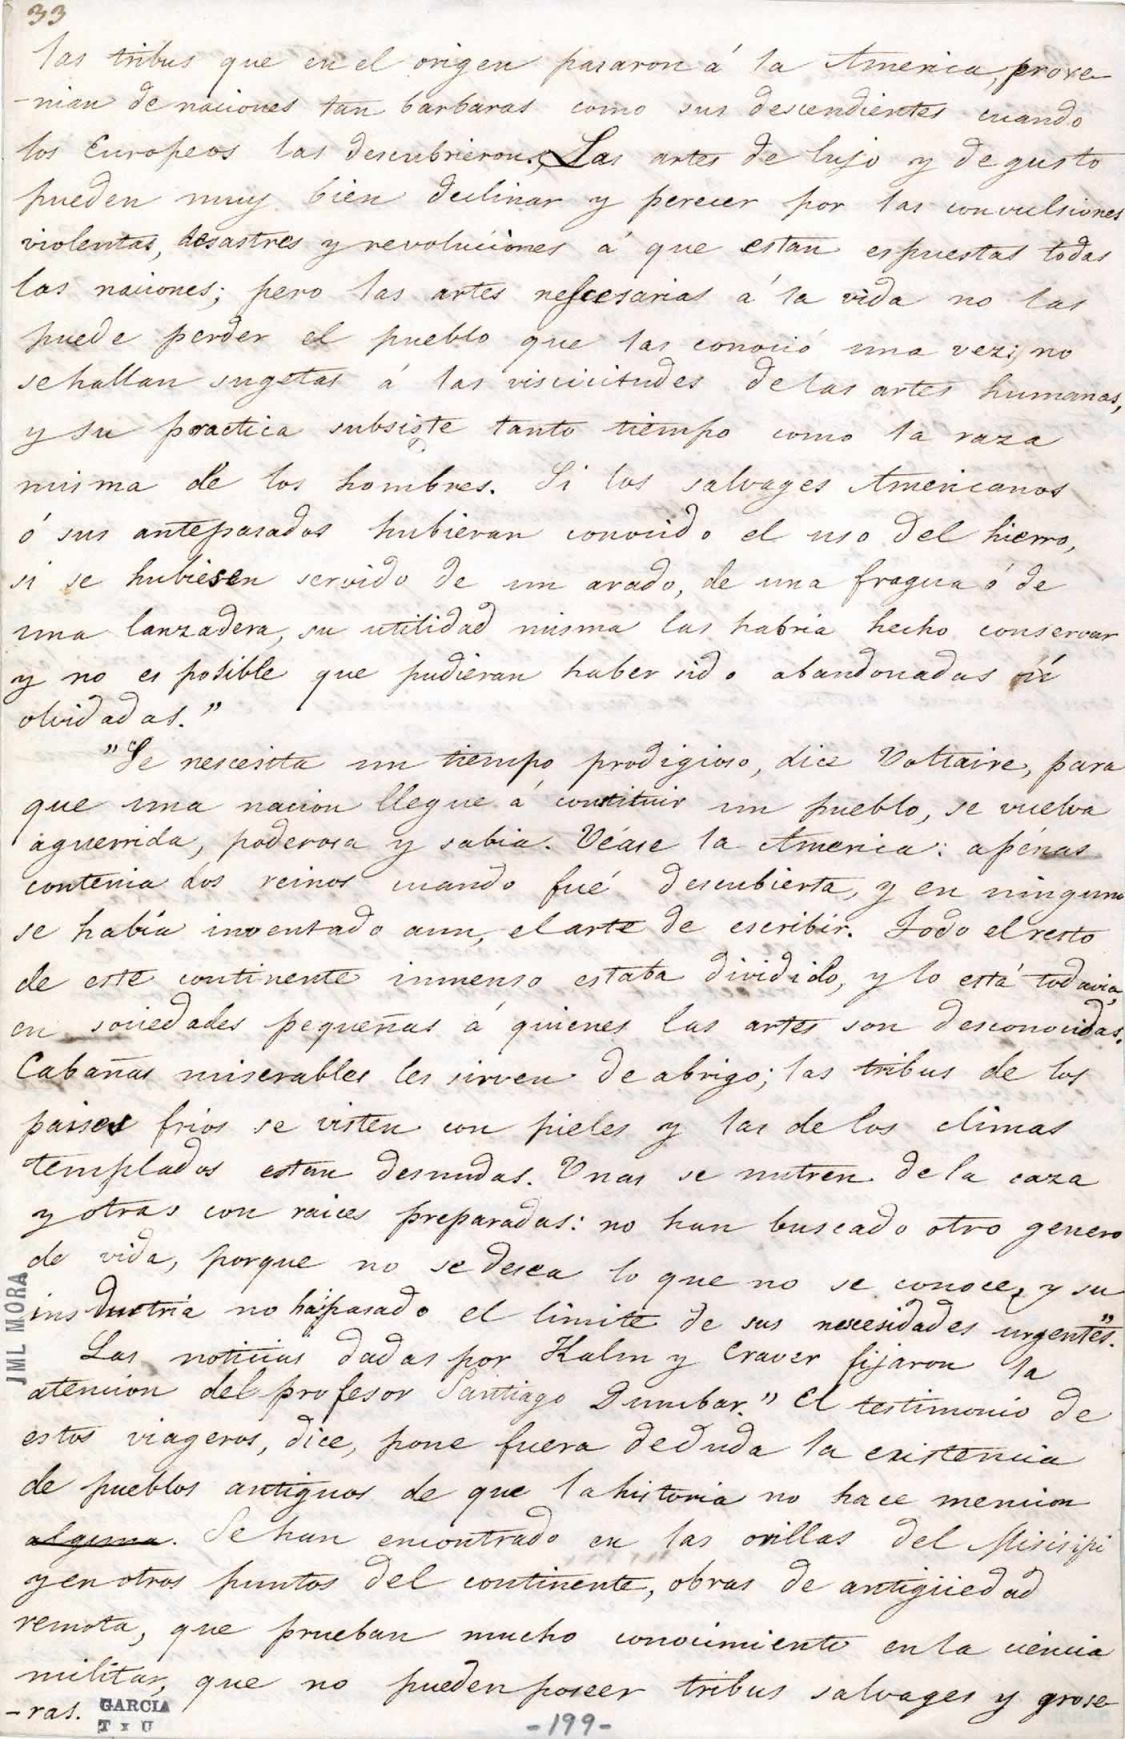 33
las tribus que en el origen pasaron á la America, prove-
-nian de naciones tan barbaras como sus descendientes cuando
los Europeos las descubrieron. Las artes de lujo y de gusto
pueden muy bien declinar y perecer por las convulsiones
violentas, desastres y revoluciones á que estan espuestas todas
las naciones; pero las artes nescesarias á la vida no las
puede perder el pueblo que las conoció una vez; no
se hallan sugetas á las viscicitudes de las artes humanas,
y su practica subsiste tanto tiempo como la raza
misma de los hombres. Si los salvages Americanos
ó sus antepasados hubieran conocido el uso del hierro,
si se hubiesen servido de un arado, de una fragua ó de
una lanzadera, su utilidad misma las habria hecho conservar
y no es posible que pudieran haber sido abandonadas ni
olvidadas."
"Se nescesita un tiempo prodigioso, dice Voltaire, para
que una nacion llegue á constituir un pueblo, se vuelva
aguerrida, poderosa y sabia. Véase la America: apénas
contenia dos reinos cuando fué descubierta, y en ninguno
se había inventado aun, el arte de escribir. Todo el resto
de este continente inmenso estaba dividido, y lo está todavia,
en sociedades pequeñas á quienes las artes son desconocidas.
Cabañas miserables les sirven de abrigo; las tribus de los
paises frios se visten con pieles y las de los climas
templados estan desnudas. Unas se nutren de la caza
y otras con raices preparadas: no han buscado otro genero
de vida, porque no se desea lo que no se conoce, y su
industria no há pasado el limite de sus nescesidades urgentes".
Las noticias dadas por Kalm y Craver fijaron la
atencion del profesor Santiago Dunbar. "El testimonio de
estos viageros, dice, pone fuera de duda la existencia
de pueblos antiguos de que la historia no hace mencion
alguna. Se han encontrado en las orillas del Misisipi
y en otros puntos del continente, obras de antigüedad
remota, que prueban mucho conocimiento en la ciencia
militar, que no pueden poseer tribus salvages y grose-
-ras.
GARCIA
TXU
-199-
JML MORA